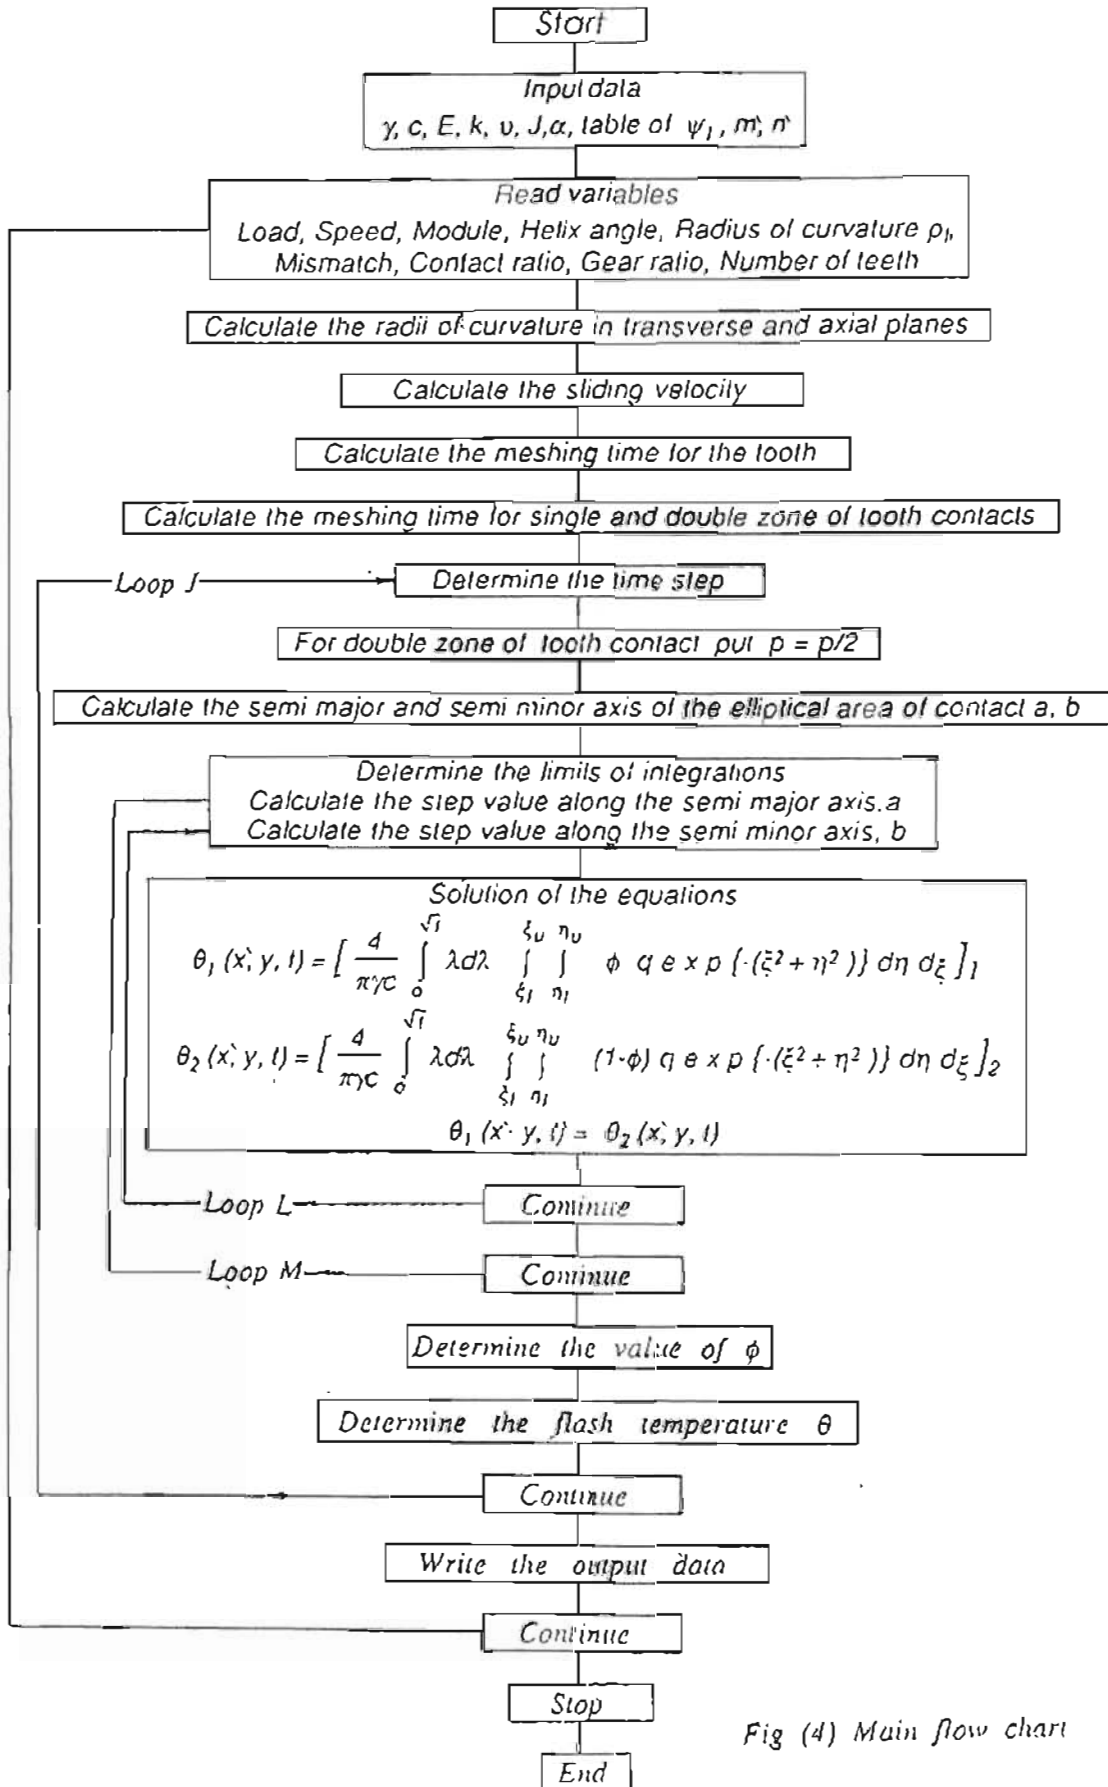 Start
Input data
γ, c, E, k, υ, J, α, table of ψ₁, m`, n`
Read variables
Load, Speed, Module, Helix angle, Radius of curvature ρ₁,
Mismatch, Contact ratio, Gear ratio, Number of teeth
Calculate the radii of curvature in transverse and axial planes
Calculate the sliding velocity
Calculate the meshing time for the tooth
Calculate the meshing time for single and double zone of tooth contacts
Loop J
Determine the time step
For double zone of tooth contact put p = p/2
Calculate the semi major and semi minor axis of the elliptical area of contact a, b
Determine the limits of integrations
Calculate the step value along the semi major axis, a
Calculate the step value along the semi minor axis, b
Solution of the equations
θ₁ (x`, y, t) = [ 4/πγc ∫₀^√t λdλ ∫_ξl^ξu ∫_ηl^ηu φ q exp {-(ξ² + η²)} dη dξ ]₁
θ₂ (x`, y, t) = [ 4/πγc ∫₀^√t λdλ ∫_ξl^ξu ∫_ηl^ηu (1-φ) q exp {-(ξ² + η²)} dη dξ ]₂
θ₁ (x` y, t) = θ₂ (x`, y, t)
Loop L
Continue
Loop M
Continue
Determine the value of φ
Determine the flash temperature θ
Continue
Write the output data
Continue
Stop
Fig (4) Main flow chart
End